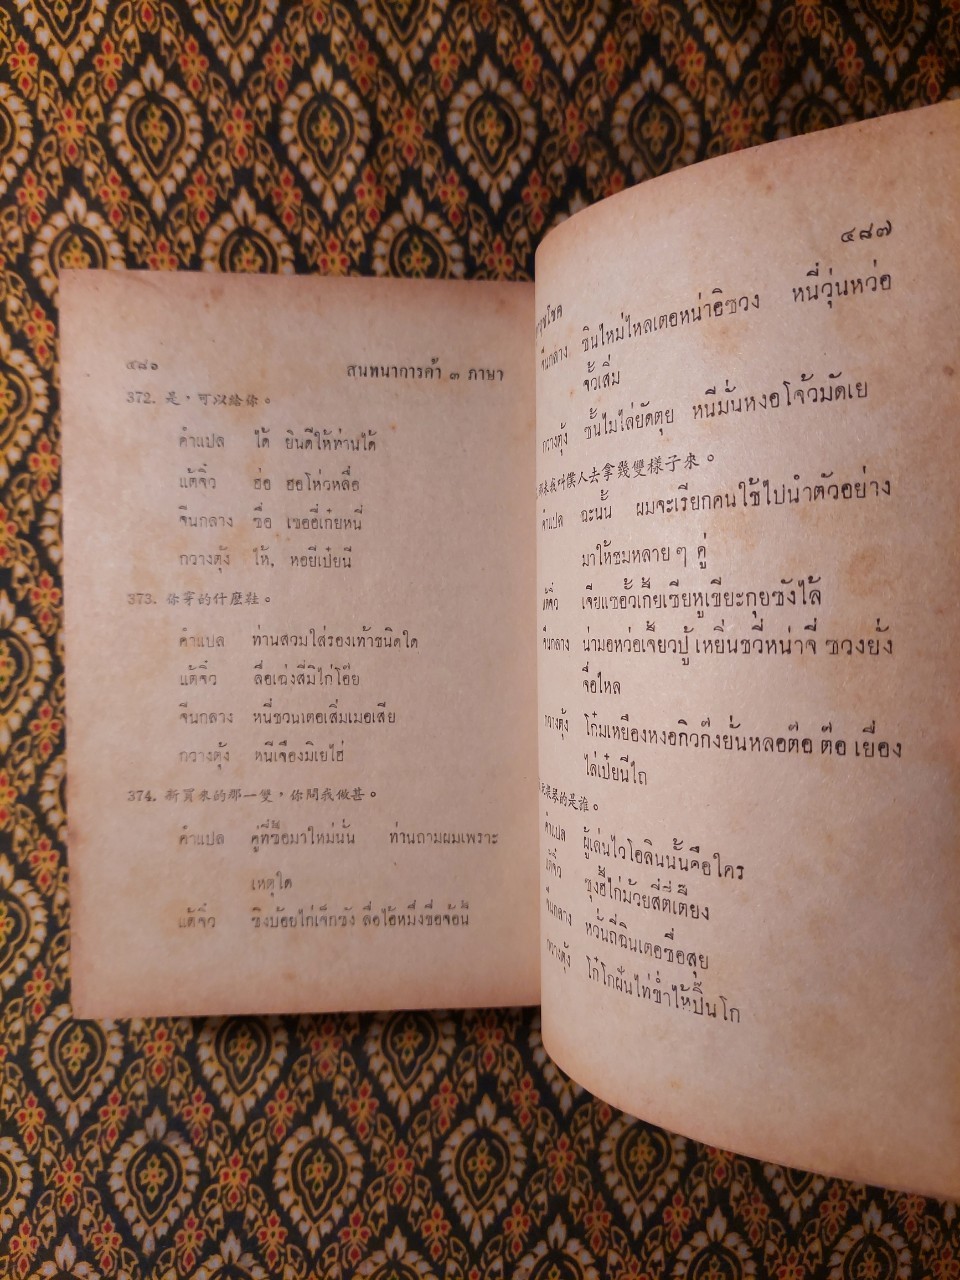 ๔๘๖ สนทนาการค้า ๓ ภาษา
372. 是，可以給你。
คำแปล ได้ ยินดีให้ท่านได้
แต้จิ๋ว ฮ่อ ฮอโห่วหลื่อ
จีนกลาง ซื่อ เขออี่เก๋ยหนี่
กวางตุ้ง ไห้, หอยีเปํยนี
373. 你穿的什麼鞋。
คำแปล ท่านสวมใส่รองเท้าชนิดใด
แต้จิ๋ว ลื่อเฉ่งสี่มิไก่โอ๊ย
จีนกลาง หนี่ชวนเตอเสิ่มเมอเสีย
กวางตุ้ง หนีเจืองมิเยไฮ่
374. 新買來的那一雙，你問我做甚。
คำแปล คู่ที่ซื้อมาใหม่นั้น ท่านถามผมเพราะ
เหตุใด
แต้จิ๋ว ซิงบ้อยไก่เจ็กซัง ลื่อไอ้หมึ่งขื่อจ้อนี้
๔๘๗
จีนกลาง ซินใหม่ไหลเตอหน่าอิซวง หนี่วุ่นหว่อ
จั้วเสิ่ม
กวางตุ้ง ซั้นไมไล่ยัดตุย หนีมั่นหงอโจ้วมัดเย
來我叫僕人去拿幾雙樣子來。
คำแปล ฉะนั้น ผมจะเรียกคนใช้ไปนำตัวอย่าง
มาให้ชมหลาย ๆ คู่
แต้จิ๋ว เจียแซอั้วเกี้ยเซียหูเขียะกุยซังไล้
จีนกลาง น่ามอหว่อเจี้ยวปู้ เหยิ่นชวี่หน่าจี่ ซวงยั่ง
จื่อไหล
กวางตุ้ง โก๋มเหยืองหงอกิวก๊งยั่นหลอต๊อ ต๊อ เยื่อง
ไล่เปํยนีไถ
琴的是誰。
คำแปล ผู้เล่นไวโอลินนั้นคือใคร
แต้จิ๋ว ซุงฮี้ไก่ม้วยสี่ตี่เตี๊ยง
จีนกลาง หวั่นถี่ฉินเตอซื่อสุย
กวางตุ้ง โก๋โกฝั่นไท่ข่ำไห้ปิ๊นโก